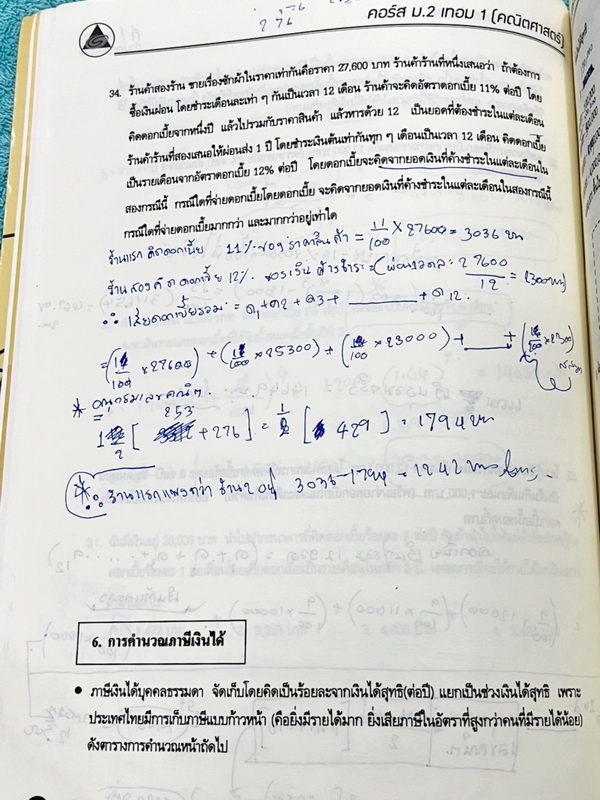 276
คอร์ส ม.2 เทอม 1 (คณิตศาสตร์)
34. ร้านค้าสองร้าน ขายเรื่องซักผ้าในราคาเท่ากันคือราคา 27,600 บาท ร้านค้าร้านที่หนึ่งเสนอว่า ถ้าต้องการ
ซื้อเงินผ่อน โดยชำระเดือนละเท่า ๆ กันเป็นเวลา 12 เดือน ร้านค้าจะคิดอัตราดอกเบี้ย 11% ต่อปี โดย
คิดดอกเบี้ยจากหนึ่งปี แล้วไปรวมกับราคาสินค้า แล้วหารด้วย 12 เป็นยอดที่ต้องชำระในแต่ละเดือน
ร้านค้าร้านที่สองเสนอให้ผ่อนส่ง 1 ปี โดยชำระเงินต้นเท่ากันทุก ๆ เดือนเป็นเวลา 12 เดือน คิดดอกเบี้ย
เป็นรายเดือนจากอัตราดอกเบี้ย 12% ต่อปี โดยดอกเบี้ยจะคิดจากยอดเงินที่ค้างชำระในแต่ละเดือนใน
สองกรณีนี้ กรณีใดที่จ่ายดอกเบี้ยโดยดอกเบี้ย จะคิดจากยอดเงินที่ค้างชำระในแต่ละเดือนในสองกรณีนี้
กรณีใดที่จ่ายดอกเบี้ยมากกว่า และมากกว่าอยู่เท่าใด
ร้านแรก คิดดอกเบี้ย 11% ของราคาสินค้า = 11/100 × 27600 = 3036 บาท
ร้านสองคิดดอกเบี้ย 12% ของเงินค้างชำระ = 27600/12 = 2300 บาท
∴ เสียดอกเบี้ยรวม = ด1 + ด2 + ด3 + ______ + ด12
× 27600) + ( × 25300) + ( × 23000) + ____ + ( × 2300)
* อนุกรมเลขคณิต
253
12/2 [ + 276] = [ 429] = 1794 บาท
* ∴ ร้านแรกแพงกว่า ร้านสอง 3036 - 1794 = 1242 บาท
6. การคำนวณภาษีเงินได้
● ภาษีเงินได้บุคคลธรรมดา จัดเก็บโดยคิดเป็นร้อยละจากเงินได้สุทธิ(ต่อปี) แยกเป็นช่วงเงินได้สุทธิ เพราะ
ประเทศไทยมีการเก็บภาษีแบบก้าวหน้า (คือยิ่งมีรายได้มาก ยิ่งเสียภาษีในอัตราที่สูงกว่าคนที่มีรายได้น้อย)
ดังตารางการคำนวณหน้าถัดไป